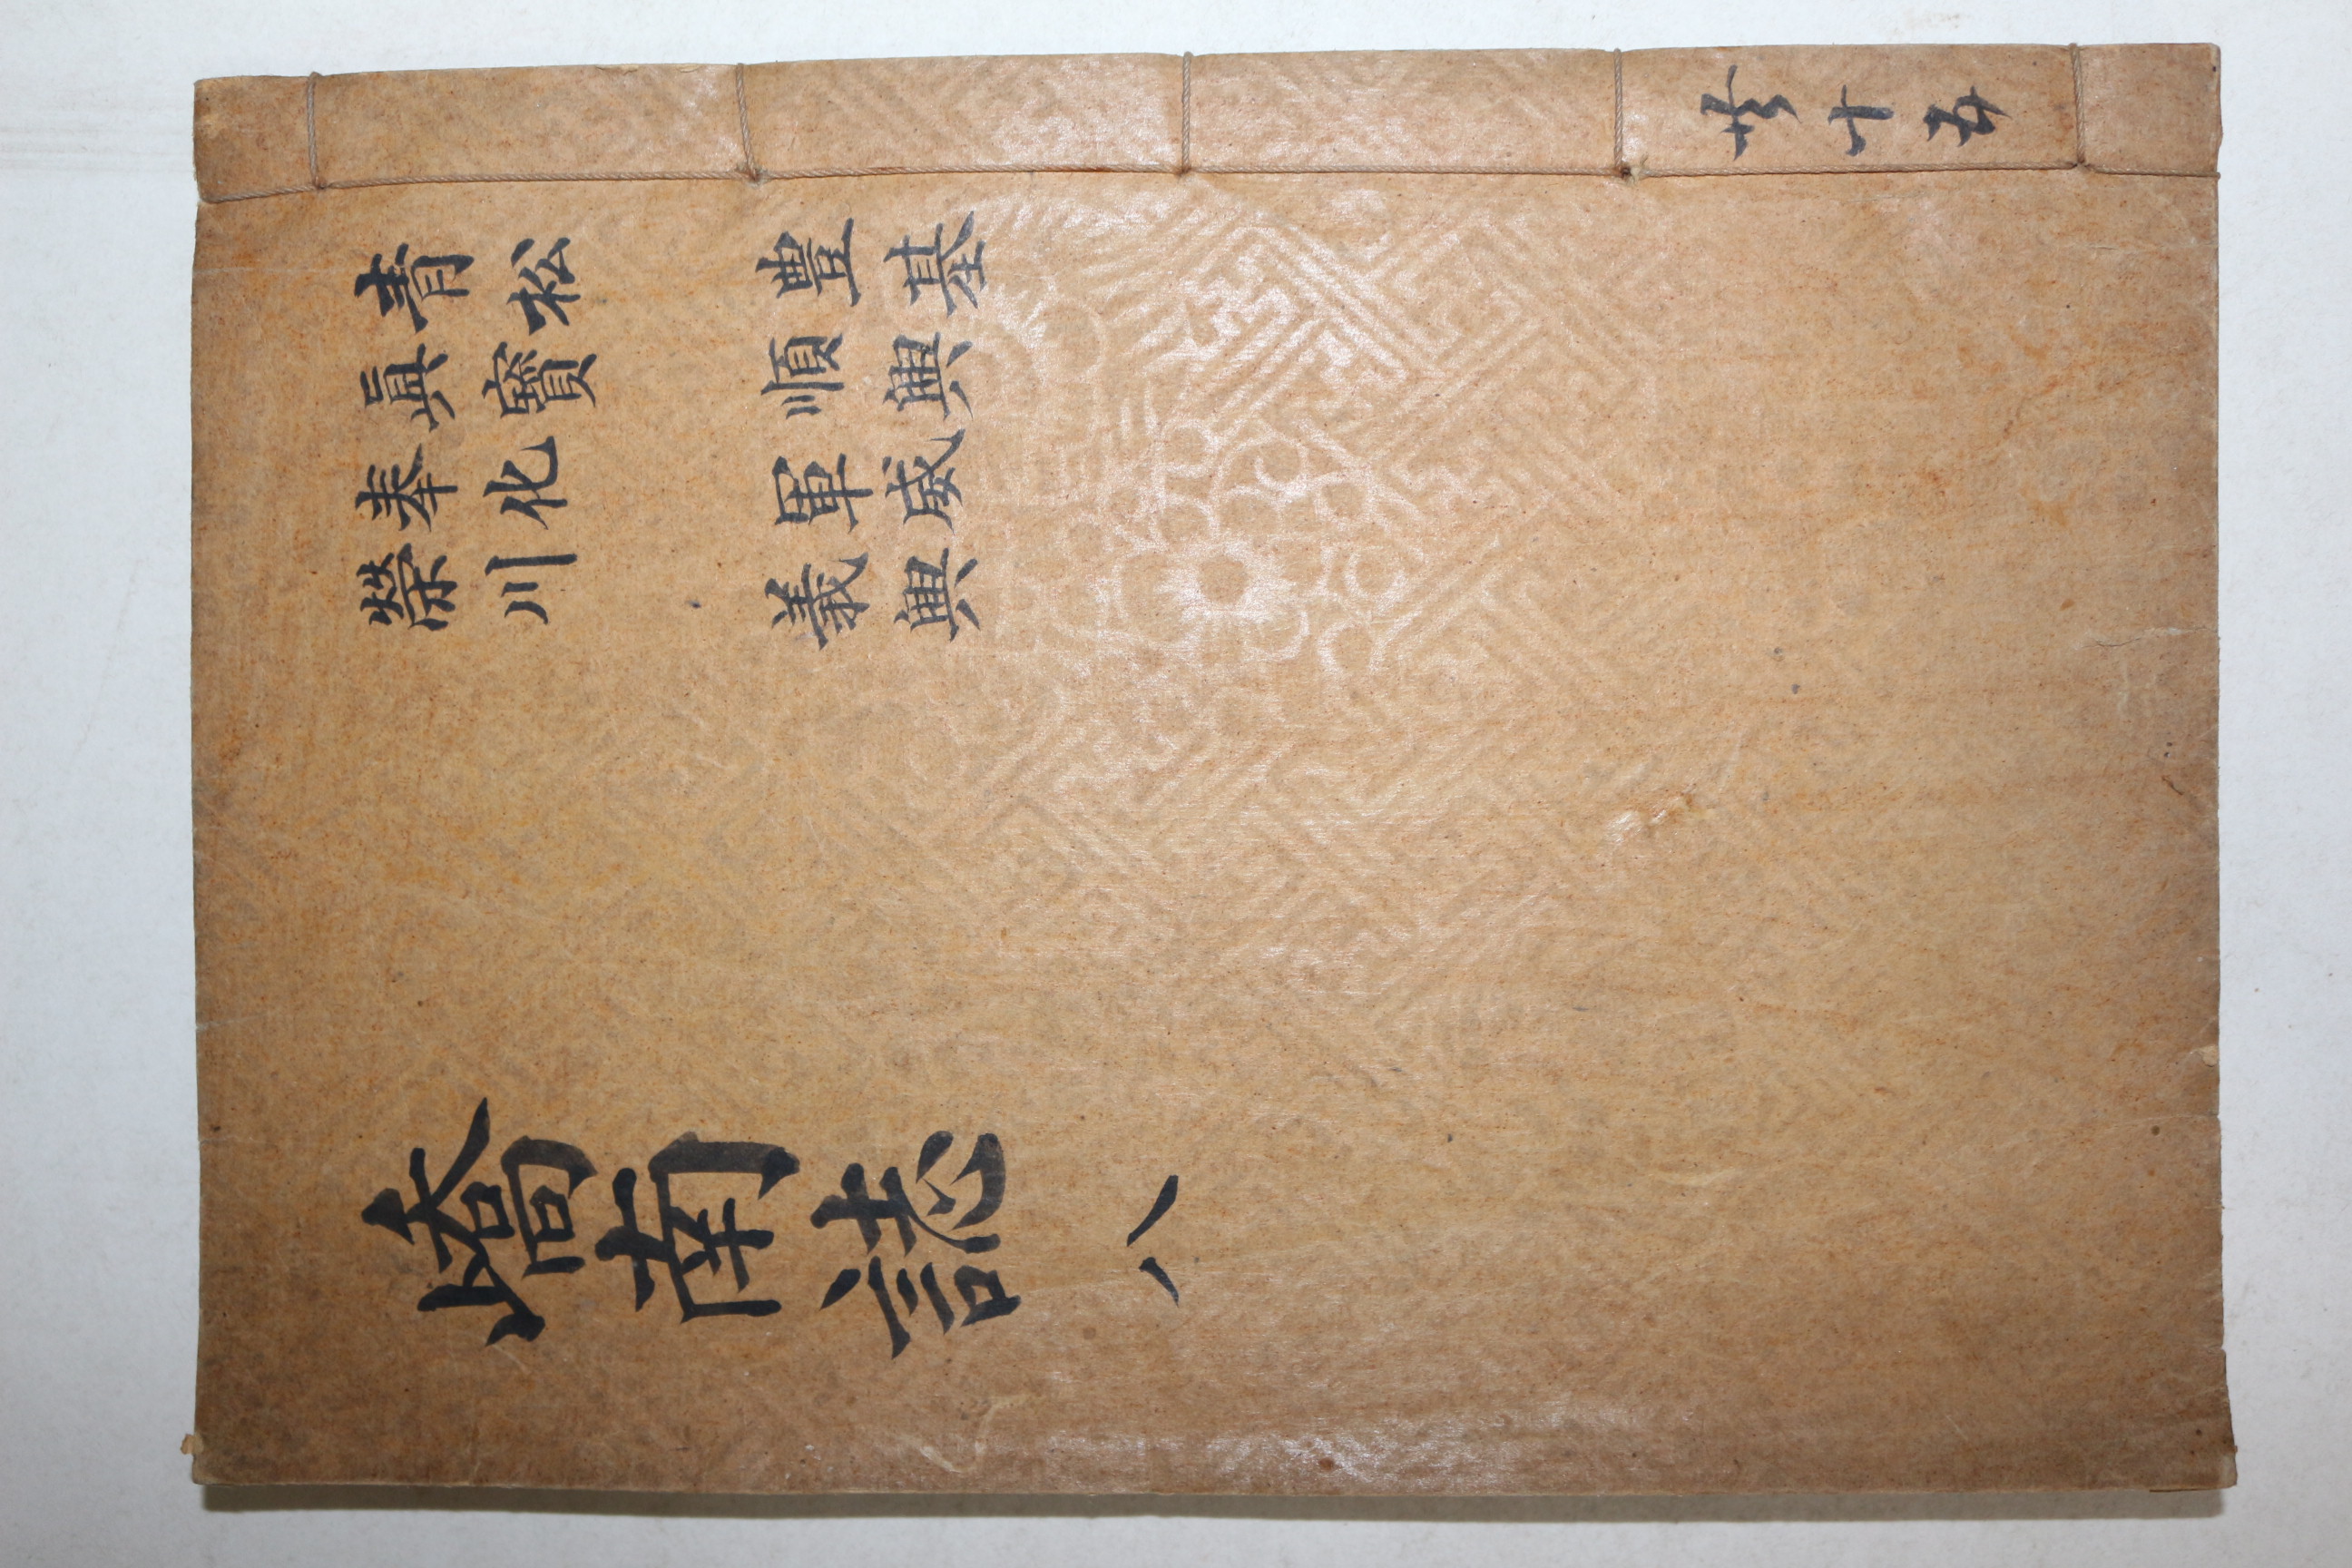 共十五
青松 豊基
眞寶 順興
奉化 軍威
榮川 義興
嶠南誌 八